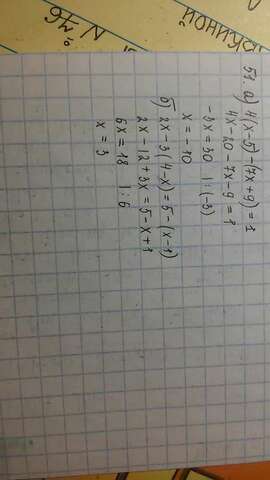 № 76
51. а) 4(x-5)-(7x+9)=1
4x-20-7x-9=1
-3x=30 |:(-3)
x=-10
б) 2x-3(4-x)=5-(x-1)
2x-12+3x=5-x+1
6x=18 |:6
x=3